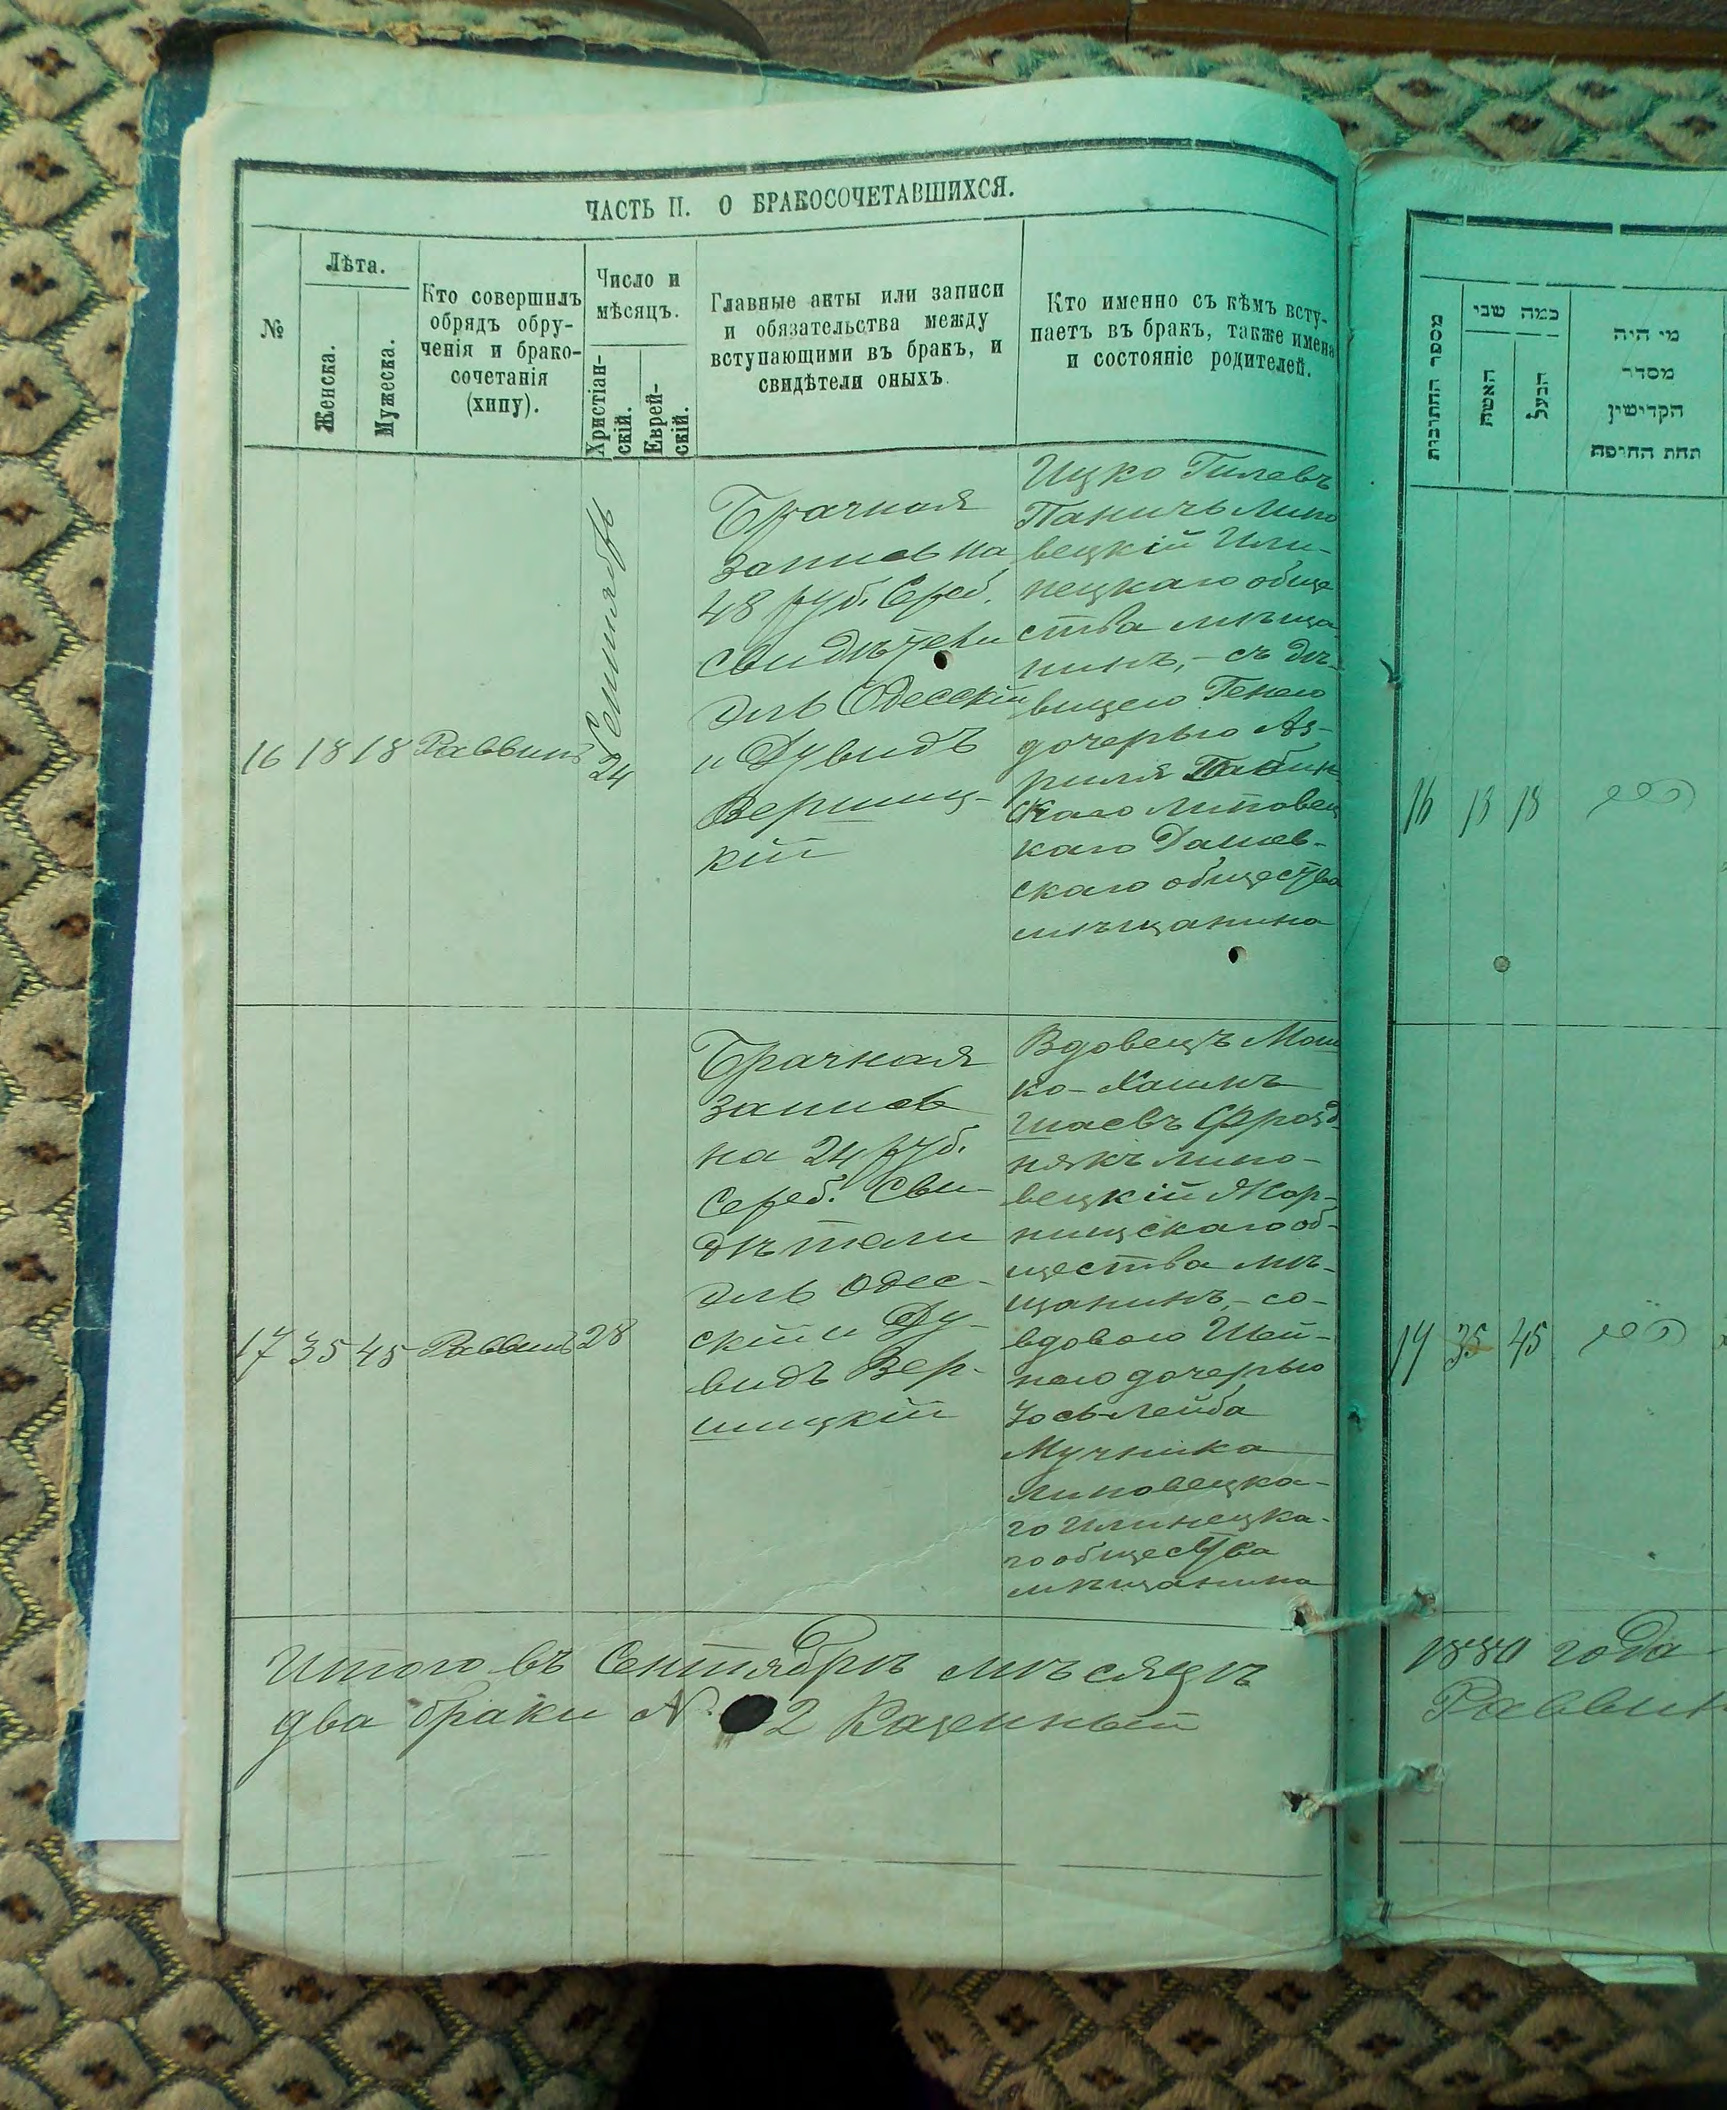 ЧАСТЬ II. О БРАКОСОЧЕТАВШИХСЯ.
№
Лѣта.
Женска.
Мужеска.
Кто совершилъ
обрядъ обру-
ченія и брако-
сочетанія
(хипу).
Число и
мѣсяцъ.
Христіан-
скій.
Еврей-
скій.
Главные акты или записи
и обязательства между
вступающими въ бракъ, и
свидѣтели оныхъ.
Кто именно съ кѣмъ всту-
паетъ въ бракъ, также имена
и состояніе родителей.
16 18 18 Раввинъ
Сентябрь
24
Брачная
запись на
48 руб. Сереб.
свидѣтели
Одесскій
и Дувидъ
Вершиц-
кій
Ицко
Паничъ Липо
вецкій Или-
нецкаго обще
ства мѣща
нинъ, – съ дѣ-
вицею Генею
дочерью Аз-
риля
скаго Липовец
каго Дашев-
скаго общества
мѣщанина
17 35 45 Раввинъ 28
Брачная
запись
на 24 руб.
Сереб. Сви-
дѣтели
Одес-
скій и Ду-
видъ Вер-
шицкій
Вдовецъ Мош
ко-Хаимъ
Шаевъ
някъ Липо-
вецкій Жор-
нищскаго об-
щества мѣ-
щанинъ, – со
вдовою Шей-
нею дочерью
Іось-Лейба
Мучника
Липовецка-
го Илинецка-
го общества
мѣщанина
Итого въ Сентябрѣ мѣсяцѣ
два браки N. 2 Казенный
מספר החתונות
כמה שני
האשה
הבעל
מי היה
מסדר
הקדישין
תחת החופה
16 18 18
17 35 45
года
Раввин